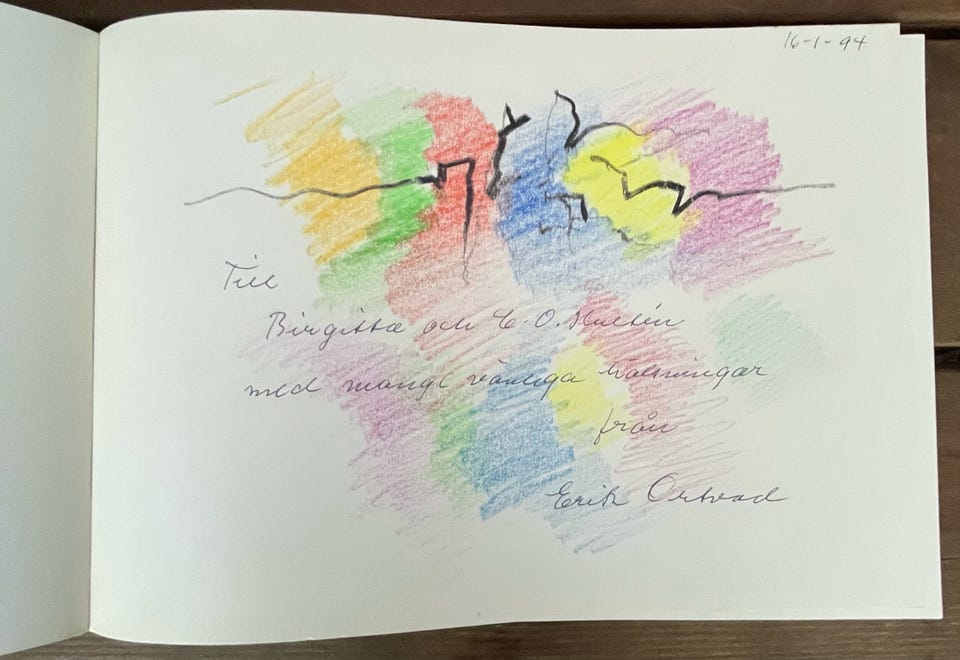 16-1-94
Till
Birgitta och C.O. Hultén
med mange vänliga hälsningar
från
Erik Ortvad